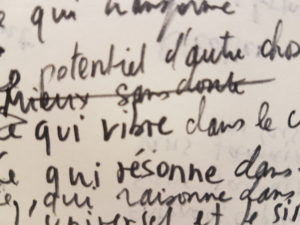 qui transforme
potentiel d'autre chos
Mieux sans doute
qui vibre dans le c
qui résonne dans
, qui raisonne dans
universel et le si